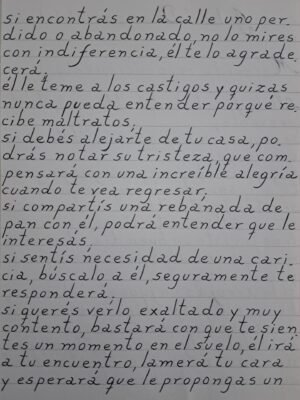 si encontrás en la calle uno per-
dido o abandonado, no lo mires
con indiferencia, él te lo agrade-
cerá.
él le teme a los castigos y quizás
nunca pueda entender porqué re-
cibe maltratos.
si debés alejarte de tu casa, po-
drás notar su tristeza, que com-
pensará con una increíble alegría
cuando te vea regresar.
si compartís una rebanada de
pan con él, podrá entender que le
interesás.
si sentís necesidad de una cari-
cia, búscalo a él, seguramente te
responderá.
si querés verlo exaltado y muy
contento, bastará con que te sien-
tes un momento en el suelo, él irá
a tu encuentro, lamerá tu cara
y esperará que le propongas un